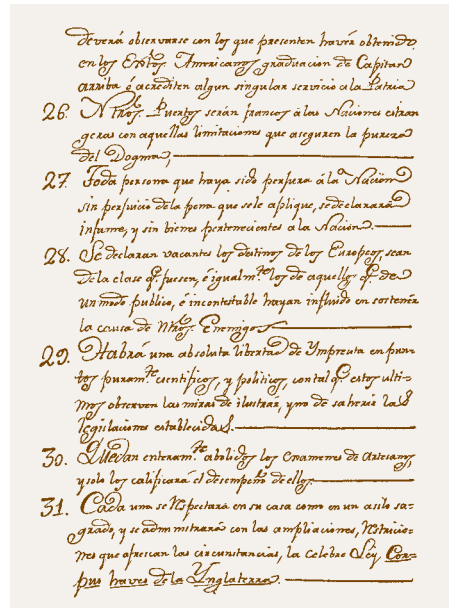 deverá observarse con los que presenten haver obtenido
en los Extos. Americanos graduacion de Capitan
arriba ó acrediten algun singular servicio a la Patria
26. Ntros. Puertos serán francos a las Naciones estran
geras con aquellas limitaciones que aseguren la pureza
del Dogma,
27. Toda persona que haya sido perjura á la Nacion
sin perjuicio de la pena que se le aplique, se declarará
infame, y sin bienes pertenecientes á la Nacion.
28. Se declaran vacantes los destinos de los Europeos, sean
de la clase q.e fuesen, é igualm.te los de aquellos q.e de
un modo publico, é incontestable hayan influido en sostener
la causa de Ntros. Enemigos
29. Habrá una absoluta libertad de Ymprenta en pun-
tos puram.te cientificos, y politicos, con tal q.e estos ulti-
mos observen las miras de ilustrar, y no de saherir las
legislaciones establecidas.
30. Quedan enteram.te abolidos los Examenes de Artesanos,
y solo los calificará el desempeño de ellos.
31. Cada uno se respetará en su casa como en un asilo sa-
grado, y se administrará con las ampliaciones, restriccio-
nes que ofrescan las circunstancias, la celebre Ley Cor-
pus haves de la Ynglaterra.